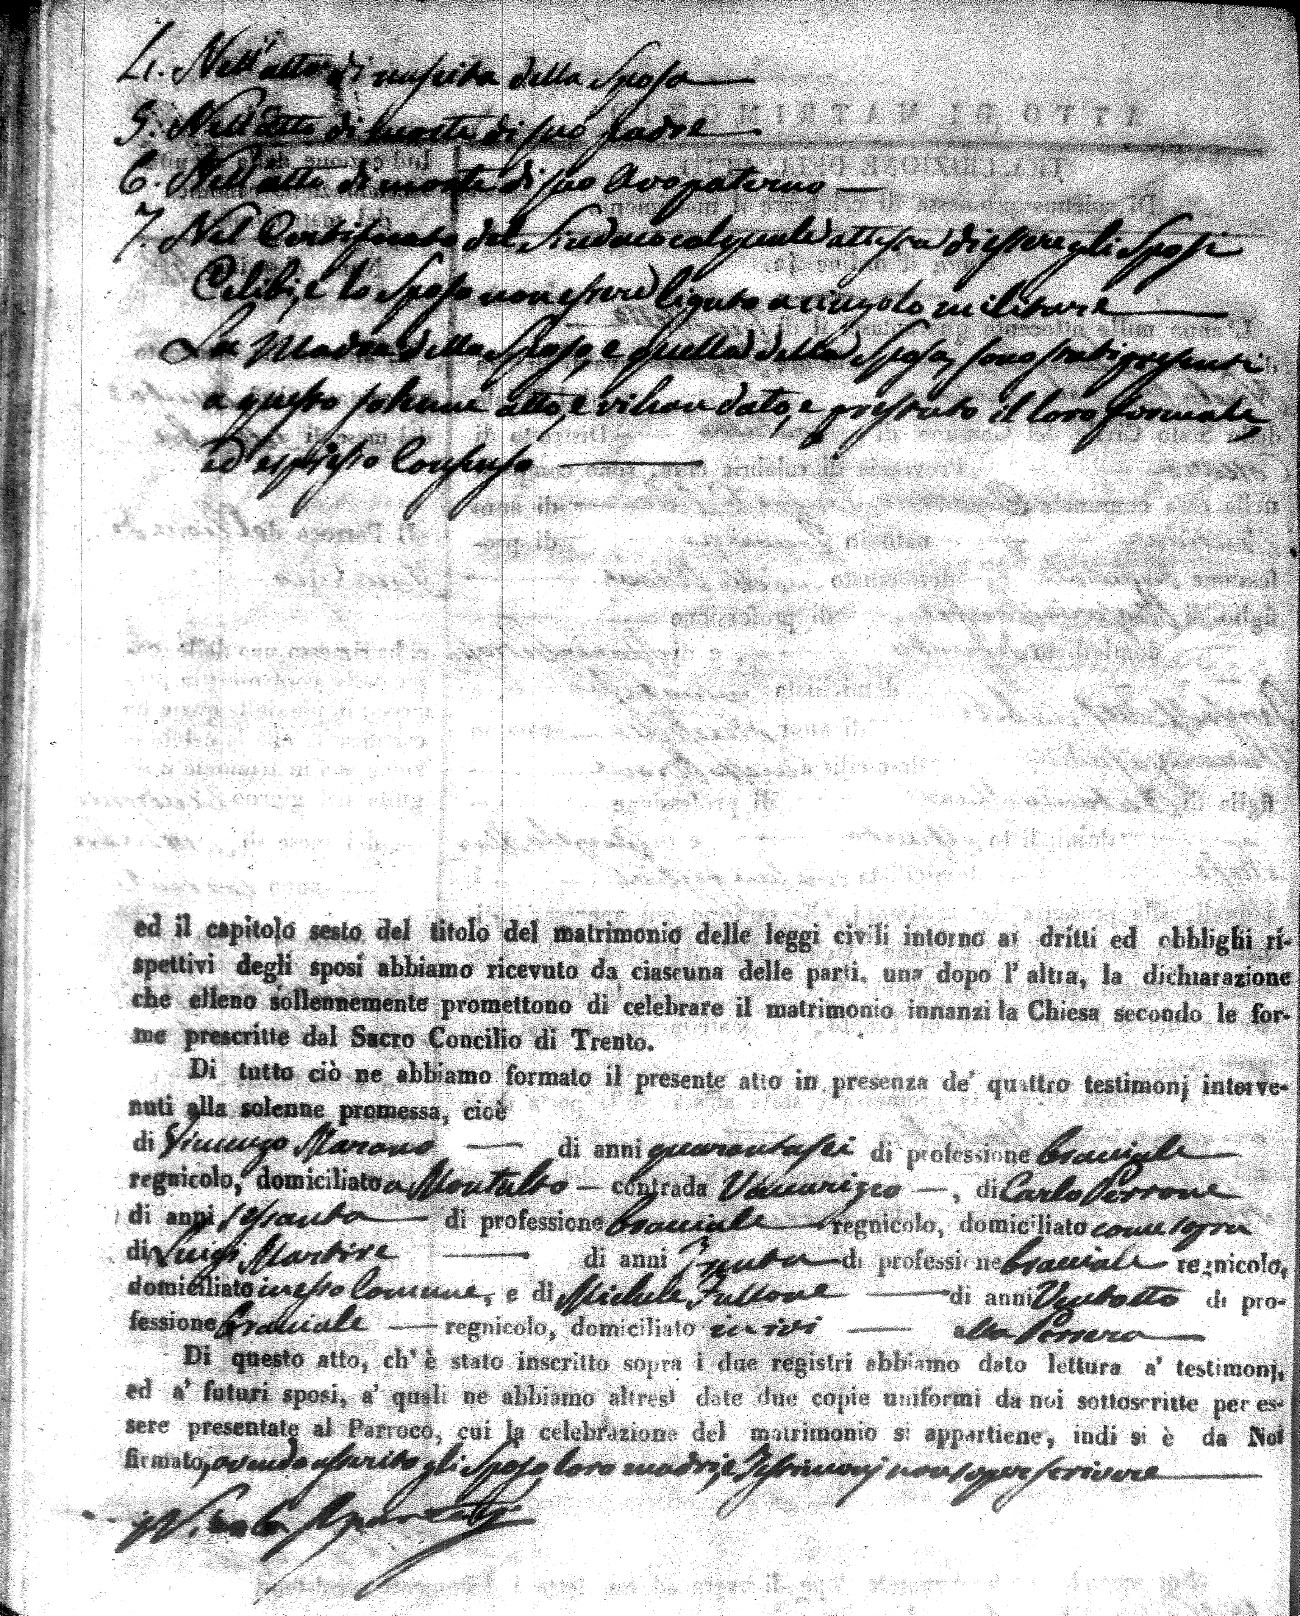 4. Nell'atto di nascita della Sposa
5. Nell'atto di morte di suo padre
6. Nell'atto di morte di suo Avo paterno
7. Nel Certificato del Sindaco col quale attesta di essere gli Sposi
Celibi, e lo Sposo non essere ligato a cingolo militare
La Madre dello Sposo, e quella della Sposa, sono stati presenti
a questo solenne atto, e vi han dato, e prestato il loro formale,
ed espresso Consenso
ed il capitolo sesto del titolo del matrimonio delle leggi civili intorno ai dritti ed obblighi ri-
spettivi degli sposi abbiamo ricevuto da ciascuna delle parti, una dopo l'altra, la dichiarazione
che elleno sollennemente promettono di celebrare il matrimonio innanzi la Chiesa secondo le for-
me prescritte dal Sacro Concilio di Trento.
Di tutto ciò ne abbiamo formato il presente atto in presenza de' quattro testimonj interve-
nuti alla solenne promessa, cioè
di Vincenzo Marono di anni quarantasei di professione bracciale
regnicolo, domiciliato a Montalto contrada Vaccarizzo, di Carlo Perrone
di anni sessanta di professione bracciale regnicolo, domiciliato come sopra
di Luigi Martire di anni Trenta di professione bracciale regnicolo,
domiciliato in esso Comune, e di Michele Fullone di anni Ventotto di pro-
fessione Bracciale regnicolo, domiciliato in ivi alla
Di questo atto, ch'è stato inscritto sopra i due registri abbiamo dato lettura a' testimonj,
ed a' futuri sposi, a' quali ne abbiamo altresì date due copie uniformi da noi sottoscritte per es-
sere presentate al Parroco, cui la celebrazione del matrimonio si appartiene, indi si è da Noi
firmato, avendo asserito gli Sposi, loro madri, e Testimonj non saper scrivere
Nicola